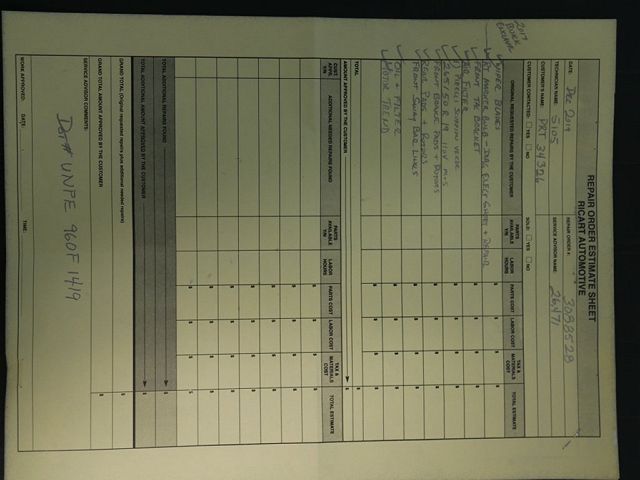 REPAIR ORDER ESTIMATE SHEET
RICART AUTOMOTIVE
2017
BUICK
DATE: Dec 2019
REPAIR ORDER #: 3098528
TECHNICIAN NAME: 5105
SERVICE ADVISOR NAME: 26,471
CUSTOMER'S NAME: PRT 34326
CUSTOMER CONTACTED: YES NO
SOLD: YES NO
ORIGINAL REQUESTED REPAIRS BY THE CUSTOMER
PARTS AVAILABLE Y/N
LABOR HOURS
PARTS COST
LABOR COST
TAX & MATERIALS COST
TOTAL ESTIMATE
WIPER BLADES
FRONT BRACKET
AIR FILTER
FRONT BRAKE PADS + ROTORS
REAR PADS + ROTORS
FRONT SWAY BAR LINKS
OIL + FILTER
MOTOR TREND
TOTAL
AMOUNT APPROVED BY THE CUSTOMER
CUST APPR. Y/N
ADDITIONAL NEEDED REPAIRS FOUND
PARTS AVAILABLE Y/N
LABOR HOURS
PARTS COST
LABOR COST
TAX & MATERIALS COST
TOTAL ESTIMATE
TOTAL ADDITIONAL REPAIRS FOUND
TOTAL ADDITIONAL AMOUNT APPROVED BY THE CUSTOMER
GRAND TOTAL (Original requested repairs plus additional needed repairs)
GRAND TOTAL AMOUNT APPROVED BY THE CUSTOMER
SERVICE ADVISOR COMMENTS:
UNPE 960F1419
WORK APPROVED: DATE: TIME: